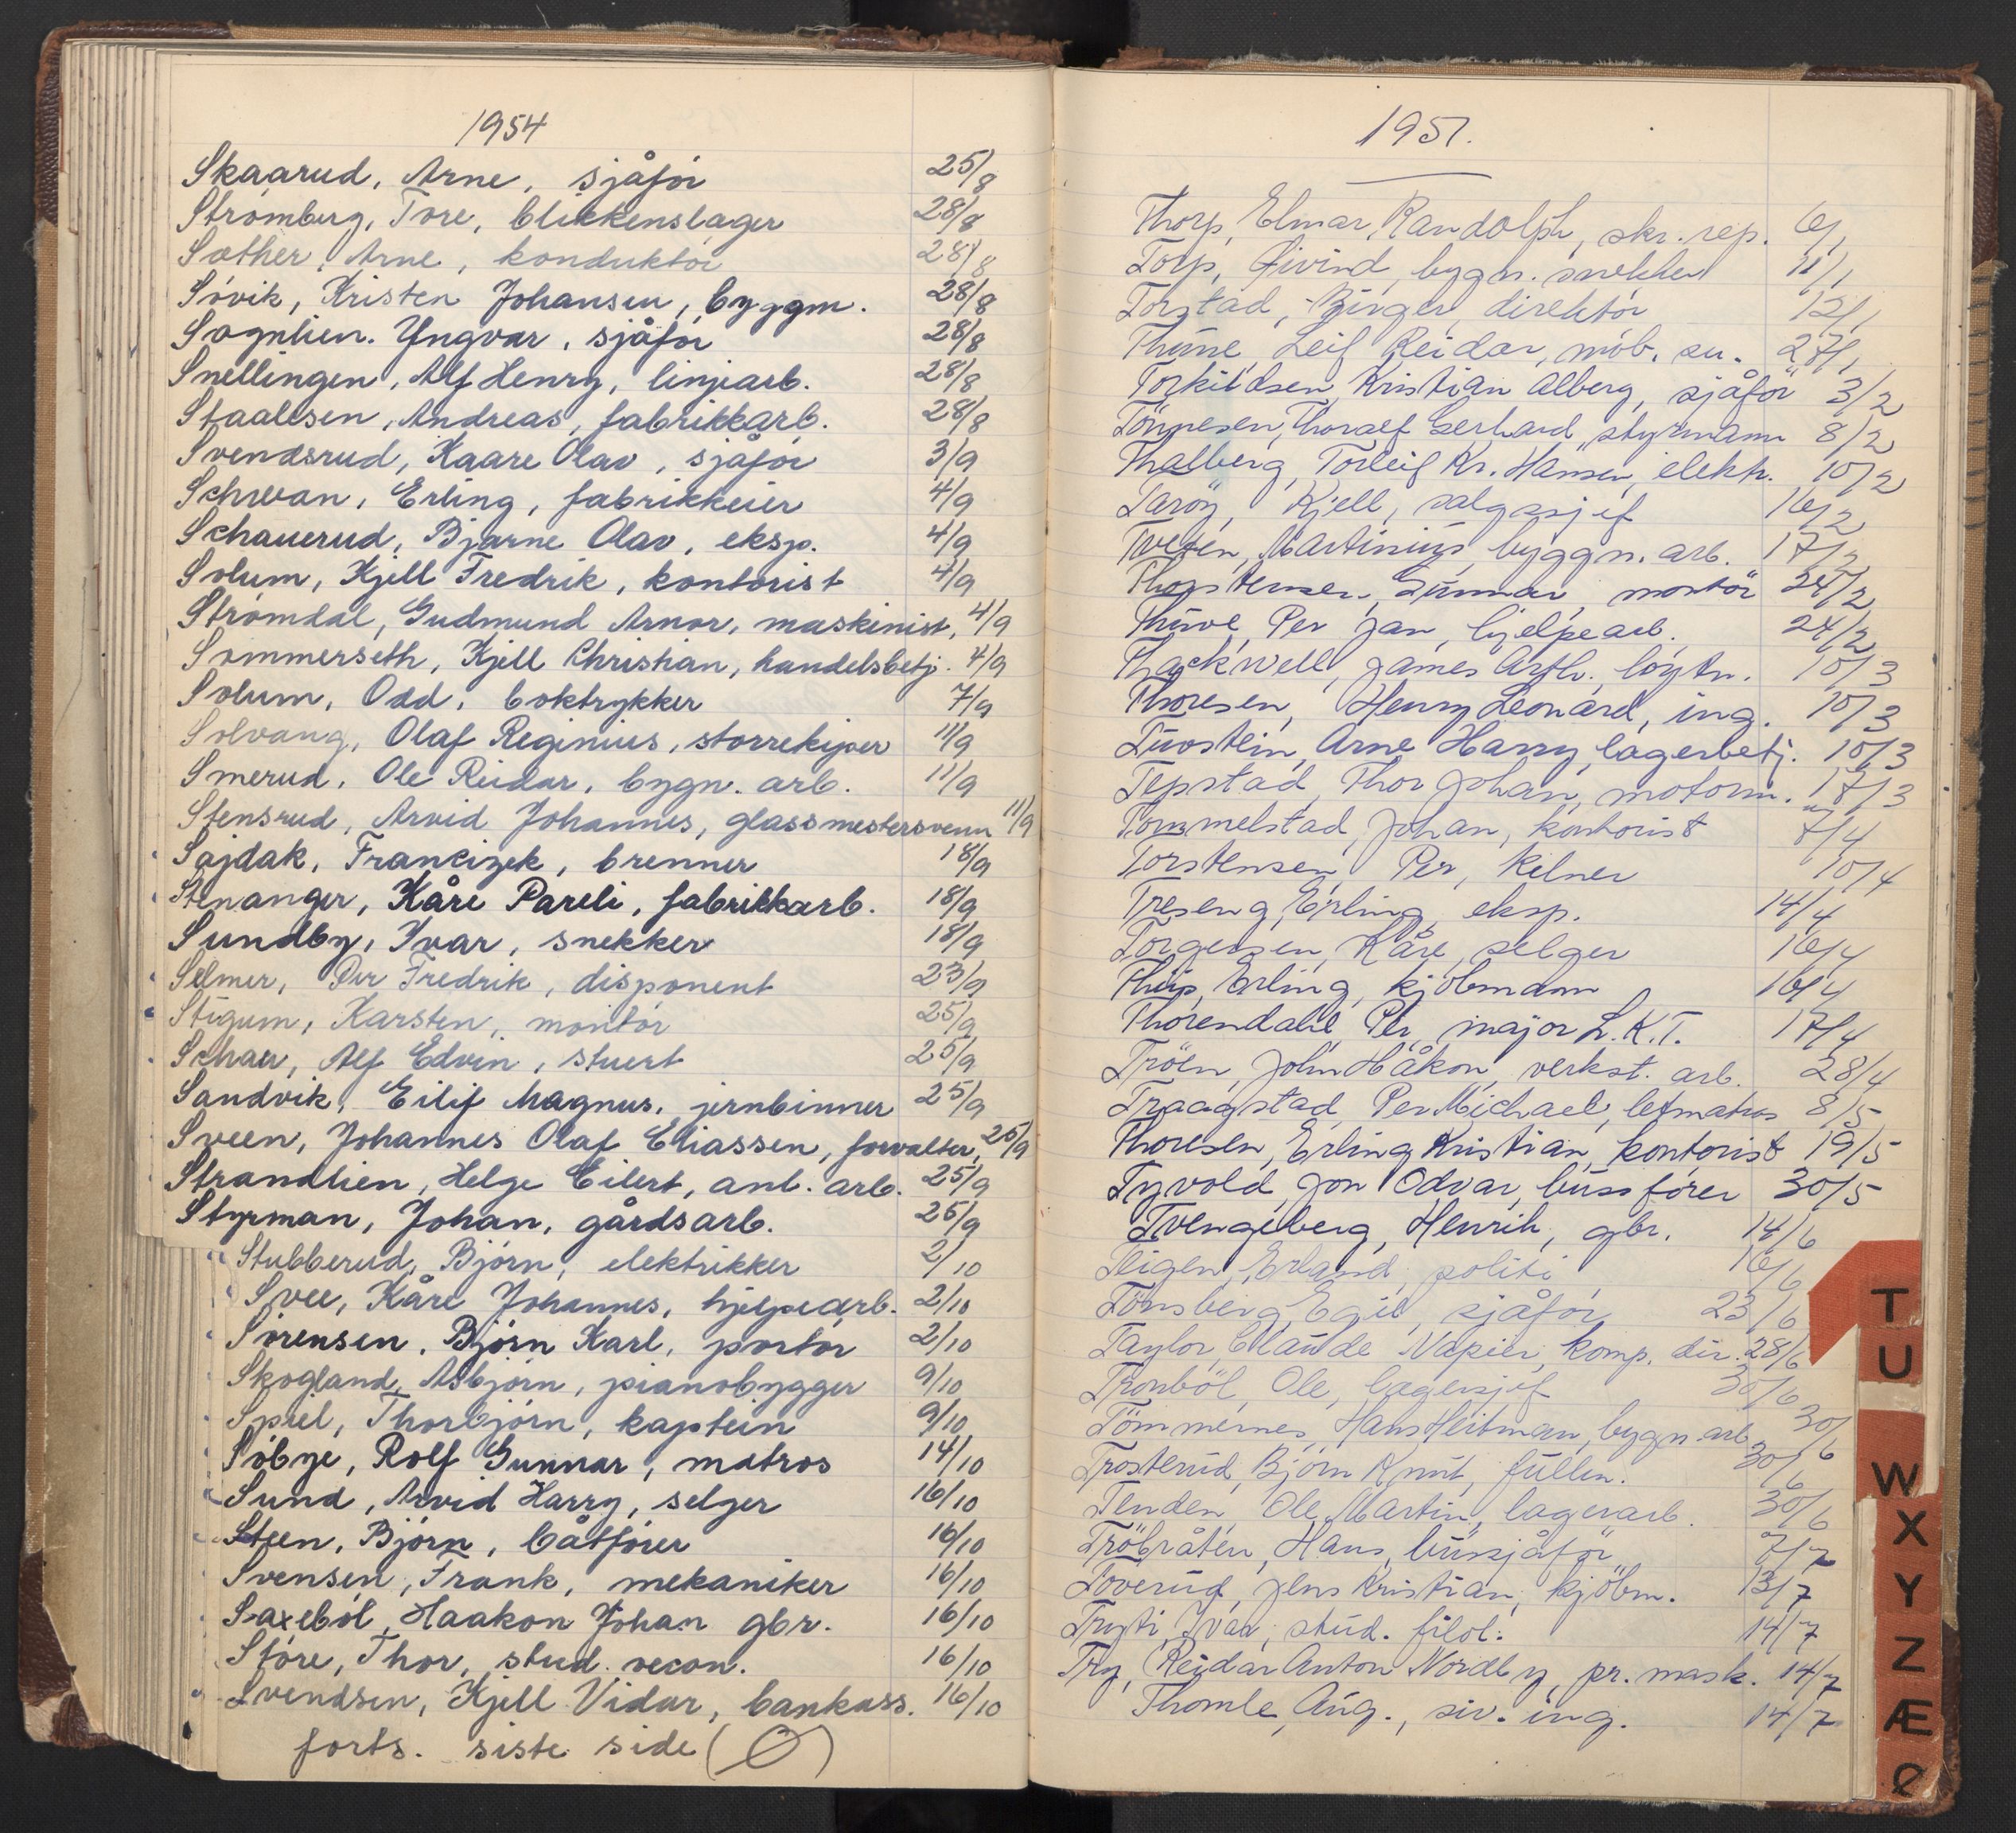 1954
Skaarud, Arne, sjåfór 25/8
Strómberg, Tore, blikkenslager 28/8
Sæther, Arne, konduktór 28/8
Sóvik, Kristen Johansen, byggm. 28/8
Sognlien. Yngvar, sjåfór 28/8
Snellingen, Alf Henry, linjearb. 28/8
Staalesen, Andreas, fabrikkarb. 28/8
Svendsrud, Kaare Olav, sjåfór 3/9
Schwan, Erling, fabrikkeier 4/9
Schauerud, Bjarne Olav, eksp. 4/9
Solum, Kjell Fredrik, kontorist 4/9
Strómdal, Gudmund Arnor, maskinist, 4/9
Sommerseth, Kjell Christian, handelsbetj. 4/9
Solum, Odd, boktrykker 7/9
Solvang, Olaf Reginius, storrekiper 11/9
Smerud, Ole Reidar, bygn. arb. 11/9
Stensrud, Arvid Johannes, glassmestersvenn 11/9
Sajdak, Francizek, brenner 18/9
Stenanger, Kåre Pareli, fabrikkarb. 18/9
Sundby, Ivar, snekker 18/9
Selmer, Per Fredrik, disponent 23/9
Stigum, Karsten, montór 25/9
Schau, Alf Edvin, stuert 25/9
Sandvik, Eilif Magnus, jernbinner 25/9
Sveen, Johannes Olaf Eliassen, forvalter, 25/9
Strandlien, Helge Eilert, anl. arb. 25/9
Styrman, Johan, gårdsarb. 25/9
Stubberud, Bjórn, elektrikker 2/10
Svee, Kåre Johannes, hjelpearb. 2/10
Sórensen, Bjórn Karl, portór 2/10
Skogland, Asbjórn, pianobygger 9/10
Spiel, Thorbjórn, kaptein 9/10
Sóbye, Rolf Gunnar, matros 14/10
Sund, Arvid Harry, selger 16/10
Steen, Bjórn, båtfórer 16/10
Svensen, Frank, mekaniker 16/10
Saxeból, Haakon Johan gbr. 16/10
Stóre, Thor, stud. oecon. 16/10
Svendsen, Kjell Vidar, bankass. 16/10
forts. siste side (O)
1951.
Thorp, Elmar, Randolph, skr. rep. 6/1
Torp, Øivind, bygn. snekker 11/1
Torstad, Birger, direktór 12/1
Thune, Leif Reidar, möb. sn. 27/1
Torkildsen, Kristian Alberg, sjåför 3/2
Tönnesen, Thoralf Gerhard, styrmann 8/2
Thalberg, Torleif Kr. Hansen, elektr. 10/2
Taröy, Kjell, salgssjef 16/2
Tveten, Martinius, byggn. arb. 17/2
Thorstensen, Gunnar, montör 24/2
Thune, Per Jan, hjelpearb. 24/2
Thackwell, James Arth., löytn. 10/3
Thoresen, Henry Leonard, ing. 10/3
Tuostein, Arne Harry, lagerbetj. 10/3
Tepstad, Thor Johan, motorm. 17/3
Tommelstad, Johan, kontorist 7/4
Torstensen, Per, kelner 10/4
Treseng, Erling, eksp. 14/4
Torgersen, Kåre, selger 16/4
Thiis, Erling, kjöbmann 16/4
Thorendahl, Per, major L.K.T. 17/4
Tröen, John Håkon, verkst. arb. 28/4
Traagstad, Per Michael, letmatros 8/5
Thoresen, Erling Kristian, kontorist 19/5
Tyvold, Jon Odvar, bussförer 30/5
Tvengsberg, Henrik, gbr. 14/6
Teigen, Erland, politi 16/6
Tönsberg, Egil, sjåför 23/6
Taylor, Claude Napier, komp. dir. 28/6
Tronböl, Ole, lagersjef 30/6
Tömmernes, Hans Heitman, bygn. arb. 30/6
Trosterud, Björn Knut, fullm. 30/6
Tenden, Ole Martin, lagerarb. 30/6
Tröbråten, Hans, bussjåför 7/7
Toverud, Jens Kristian, kjöbm. 13/7
Tryti, Ivar, stud. filol. 14/7
Try, Reidar Anton Nordby, pr. mask. 14/7
Thomle, Aug., siv. ing. 14/7
T
U
W
X
Y
Z
Æ
Ø